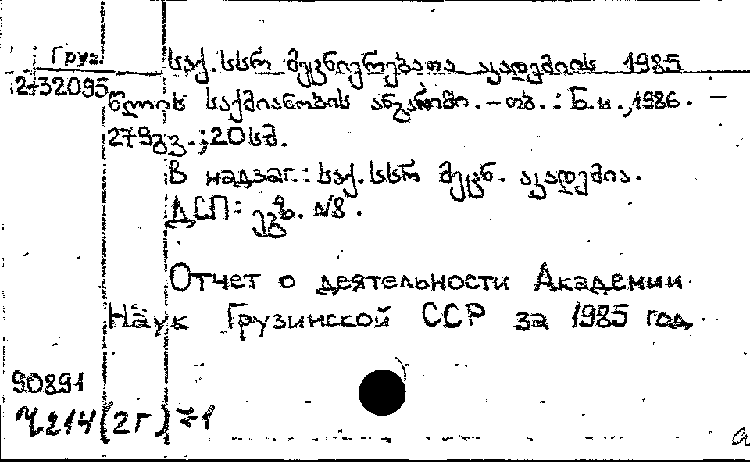 Груз.
საქ. სსრ მეცნიერებათა აკადემიის 1985
2-132095
წლის საქმიანობის ანგარიში. - თბ. : Б.и., 1986. -
279 გვ. ; 20 სმ.
В надзаг.: საქ. სსრ მეცნ. აკადემია.
ДСП: ეგზ. №8.
Отчет о деятельности Академии
Наук Грузинской ССР за 1985 год
90891
Ч214(2Г)